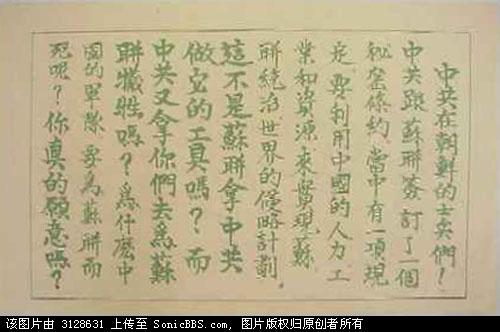 中共在朝鮮的士兵們!
中共跟蘇聯簽訂了一個
秘密條約、當中有一項規
定、要利用中國的人力工
業和資源來實現蘇
聯統治世界的侵略計劃。
這不是蘇聯拿中共
做它的工具嗎?而
中共又拿你們去爲蘇
聯犧牲嗎?爲什麽中
國的軍隊要爲蘇聯而
死呢?你真的願意嗎?
该图片由 3128631 上传至 SonicBBS.com, 图片版权归原创者所有